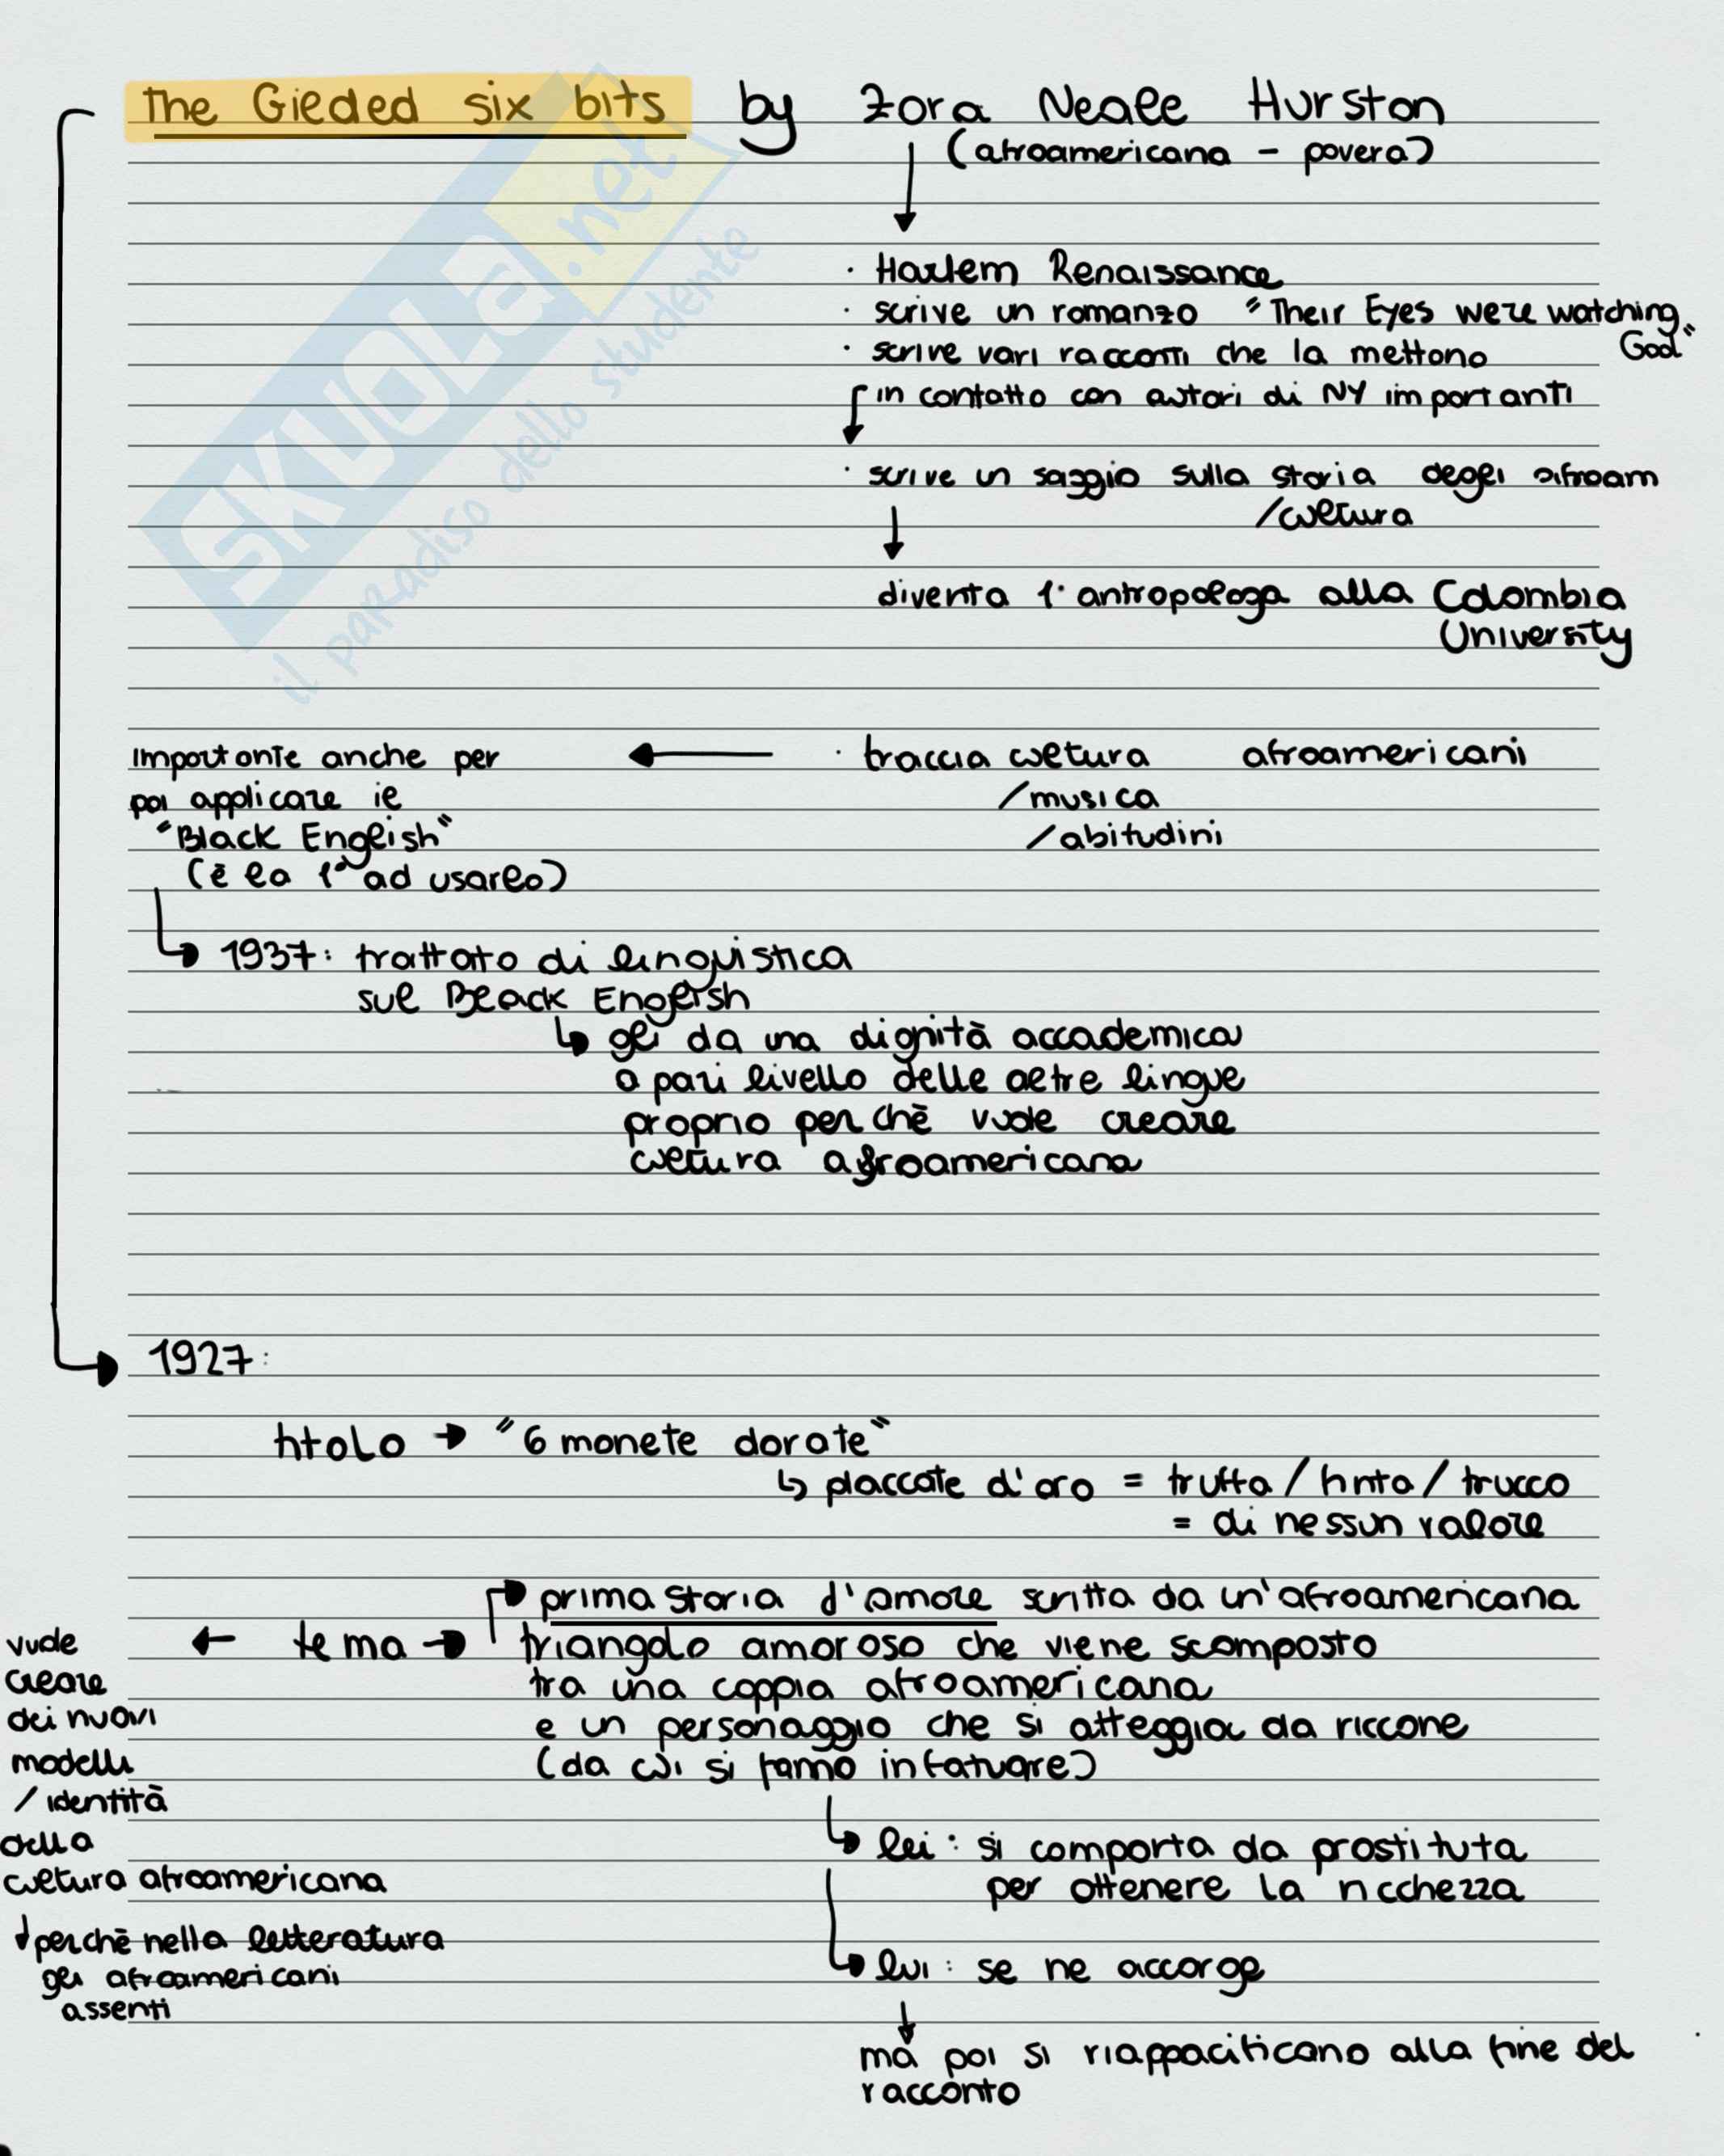 The Gilded six bits by Zora Neale Hurston
(afroamericana - povera)
· Harlem Renaissance
· scrive un romanzo "Their Eyes were watching
God"
· scrive vari racconti che la mettono
in contatto con autori di NY importanti
· scrive un saggio sulla storia degli afroam
/cultura
diventa 1° antropologa alla Colombia
University
· traccia cultura afroamericani
/musica
/abitudini
Importante anche per
poi applicare il
"Black English"
(è la 1° ad usarlo)
1937: trattato di linguistica
sul Black English
gli da una dignità accademica
a pari livello delle altre lingue
proprio perchè vuole creare
cultura afroamericana
1927:
titolo → "6 monete dorate"
placcate d'oro = truffa/finta/trucco
= di nessun valore
prima storia d'amore scritta da un'afroamericana
tema → triangolo amoroso che viene scomposto
tra una coppia afroamericana
e un personaggio che si atteggia da riccone
(da cui si fanno infatuare)
vuole
creare
dei nuovi
modelli
/identità
della
cultura afroamericana
perchè nella letteratura
gli afroamericani
assenti
lei: si comporta da prostituta
per ottenere la ricchezza
lui: se ne accorge
ma poi si riappacificano alla fine del
racconto
SKUOLA.net
il paradiso dello studente